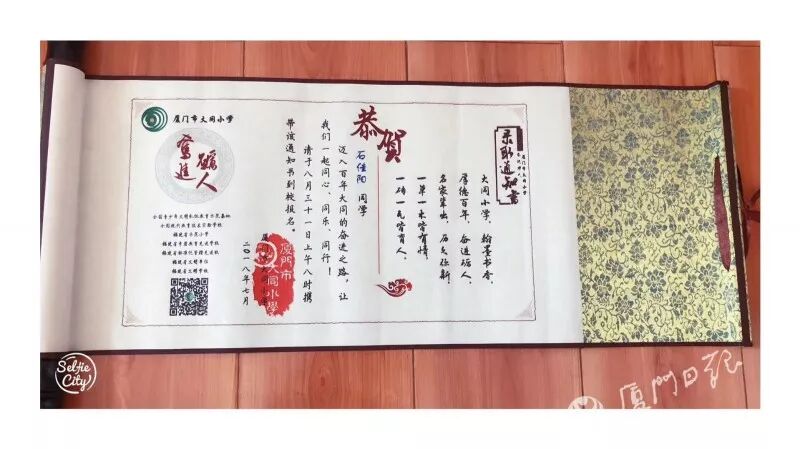 录取通知书
厦门市大同小学
大同小学，翰墨书香，
厚德百年，奋进砺人，
名家辈出，历久弥新，
一草一木皆有情，
一砖一瓦皆育人。
恭贺
石佳阳 同学
迈入百年大同的奋进之路，让
我们一起同心、同乐、同行！
请于八月三十一日上午八时携
带该通知书到校报名。
厦门市大同小学
二〇一八年七月
厦门市
大同小学
厦门市大同小学
奋进
砺人
福建省文明学校
Selfie
City
厦门日报